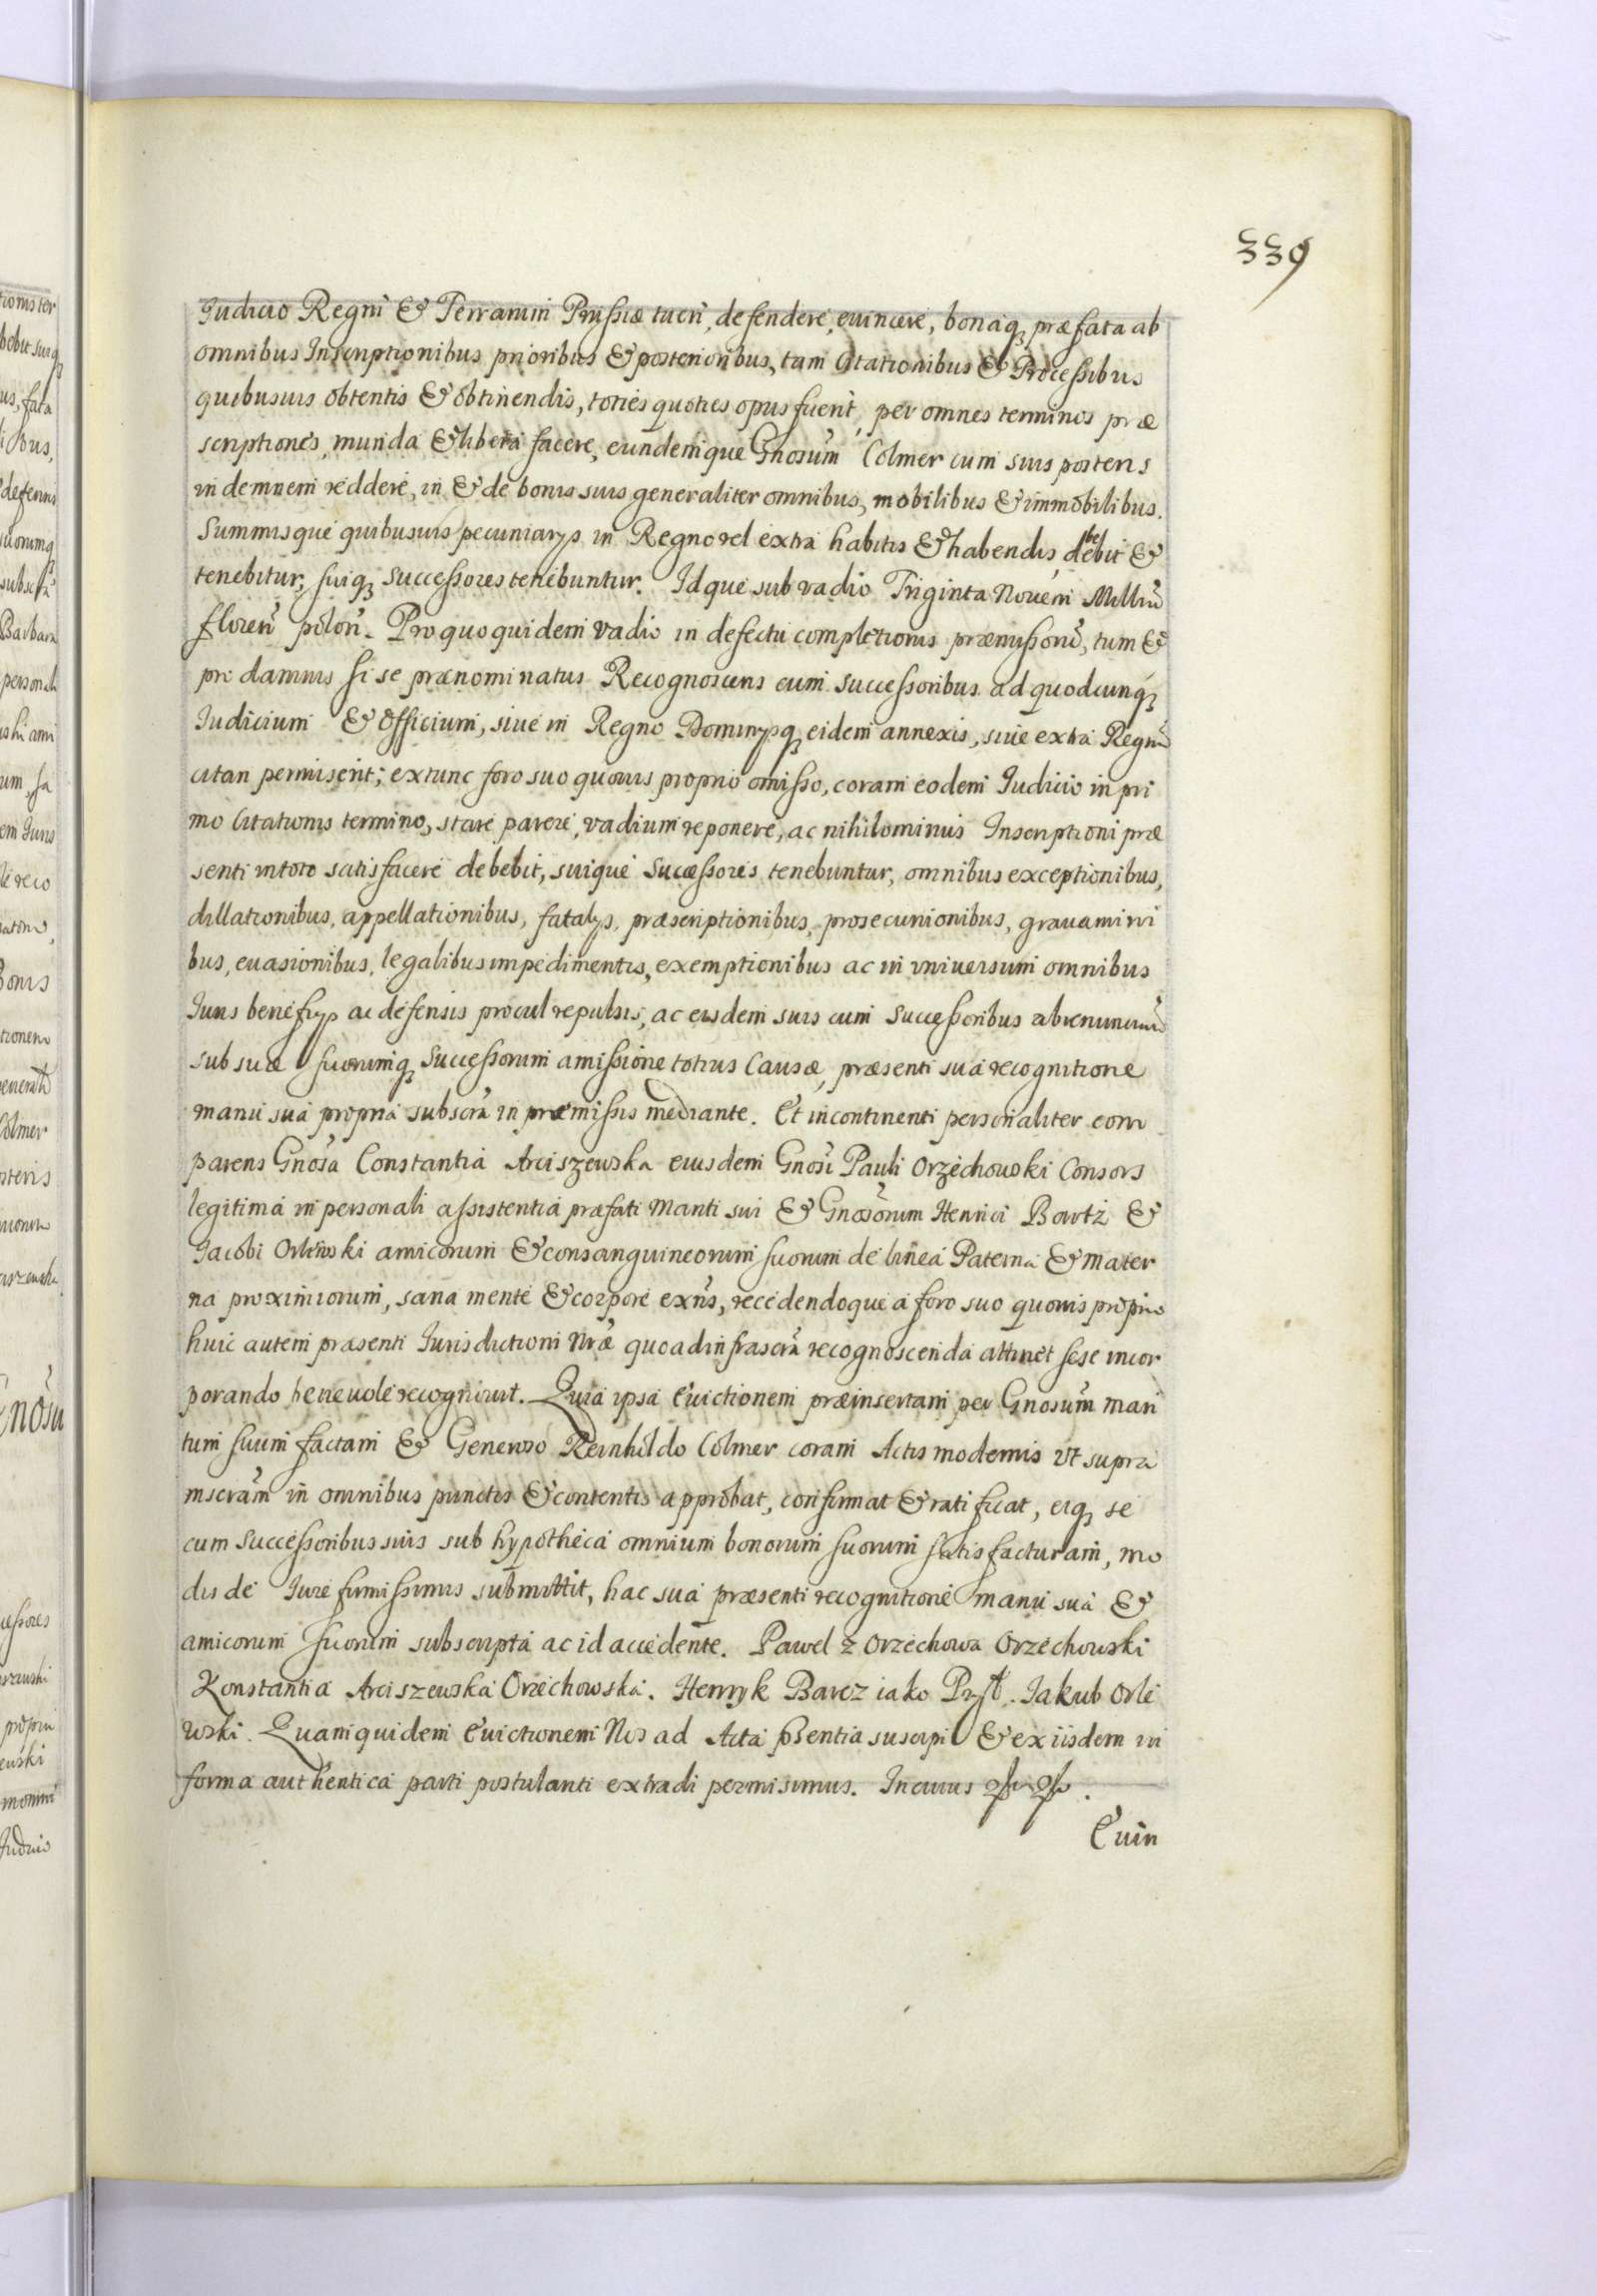 339
Iudicio Regni & Terrarum Prussiæ tueri, defendere, euincere, bonaq₃ præfata ab
omnibus Inscriptionibus prioribus & posterioribus, tam Citationibus & Processibus
quibusuis obtentis & obtinendis, toties quoties opus fuerit, per omnes terminos præ
scriptiones, munda & libera facere, eundemque Gnosum Colmer cum suis posteris
indemnem reddere, in & de bonis suis generaliter omnibus, mobilibus & immobilibus.
Summisque quibusuis pecuniarijs in Regno vel extra habitis & habendis, debebit &
tenebitur, suiq₃ successores tenebuntur. Idque sub vadio Triginta Nouem Milliũ
floreñ poloñ. Pro quo quidem vadio in defectu completionis præmissorũ, tum &
pro damnis si se prænominatus Recognoscens cum successoribus ad quodcunq₃
Iudicium & Officium, siue in Regno Dominijsq₃ eidem annexis, siue extra Regnũ
citari permiserit; extunc foro suo quouis proprio omisso, coram eodem Iudicio in pri
mo Citationis termino, stare parere, vadium reponere, ac nihilominus Inscriptioni præ
senti in toto satisfacere debebit, suique successores tenebuntur, omnibus exceptionibus,
dillationibus, appellationibus, fatalijs, præscriptionibus, prosecunionibus, grauamini
bus, euasionibus, legalibus impedimentis, exemptionibus ac in vniuersum omnibus
Iuris beneficijs ac defensis procul repulsis, ac eisdem suis cum successoribus abrenunciañ
sub suæ suorumq₃ successorum amissione totius Causæ, præsenti sua recognitione
manu sua propria subscrã in præmissis mediante. Et incontinenti personaliter com
parens Gnosa Constantia Arciszewska eiusdem Gnosi Pauli Orzechowski Consors
legitima in personali assistentia præfati Mariti sui & Gnosorum Henrici Bartz &
Iacobi Orlewski amicorum & consanguineorum suorum de linea Paterna & Mater
na proximiorum, sana mente & corpore exñs, recedendoque a foro suo quouis proprio
huic autem præsenti Iurisdictioni Nræ quoad infrascrã recognoscenda attinet sese incor
porando beneuole recognouit. Quia ipsa Euictionem præinsertam per Gnosum mari
tum suum factam & Generoso Reinholdo Colmer coram Actis modernis vt supra
inscrãm in omnibus punctis & contentis approbat, confirmat & ratificat, eiq₃ se
cum successoribus suis sub hypotheca omnium bonorum suorum satisfacturam, mo
dis de Iure firmissimis submittit, hac sua præsenti recognitione manu sua &
amicorum suorum subscripta ac id accedente. Pawel z Orzechowa Orzechowski
Konstantia Arciszewska Orzechowska. Henryk Barcz iako Przyt. Iakub Orle
wski. Quam quidem Euictionem Nos ad Acta pñsentia suscepi & ex iisdem in
forma authentica parti postulanti extradi permisimus. In cuius
Euin